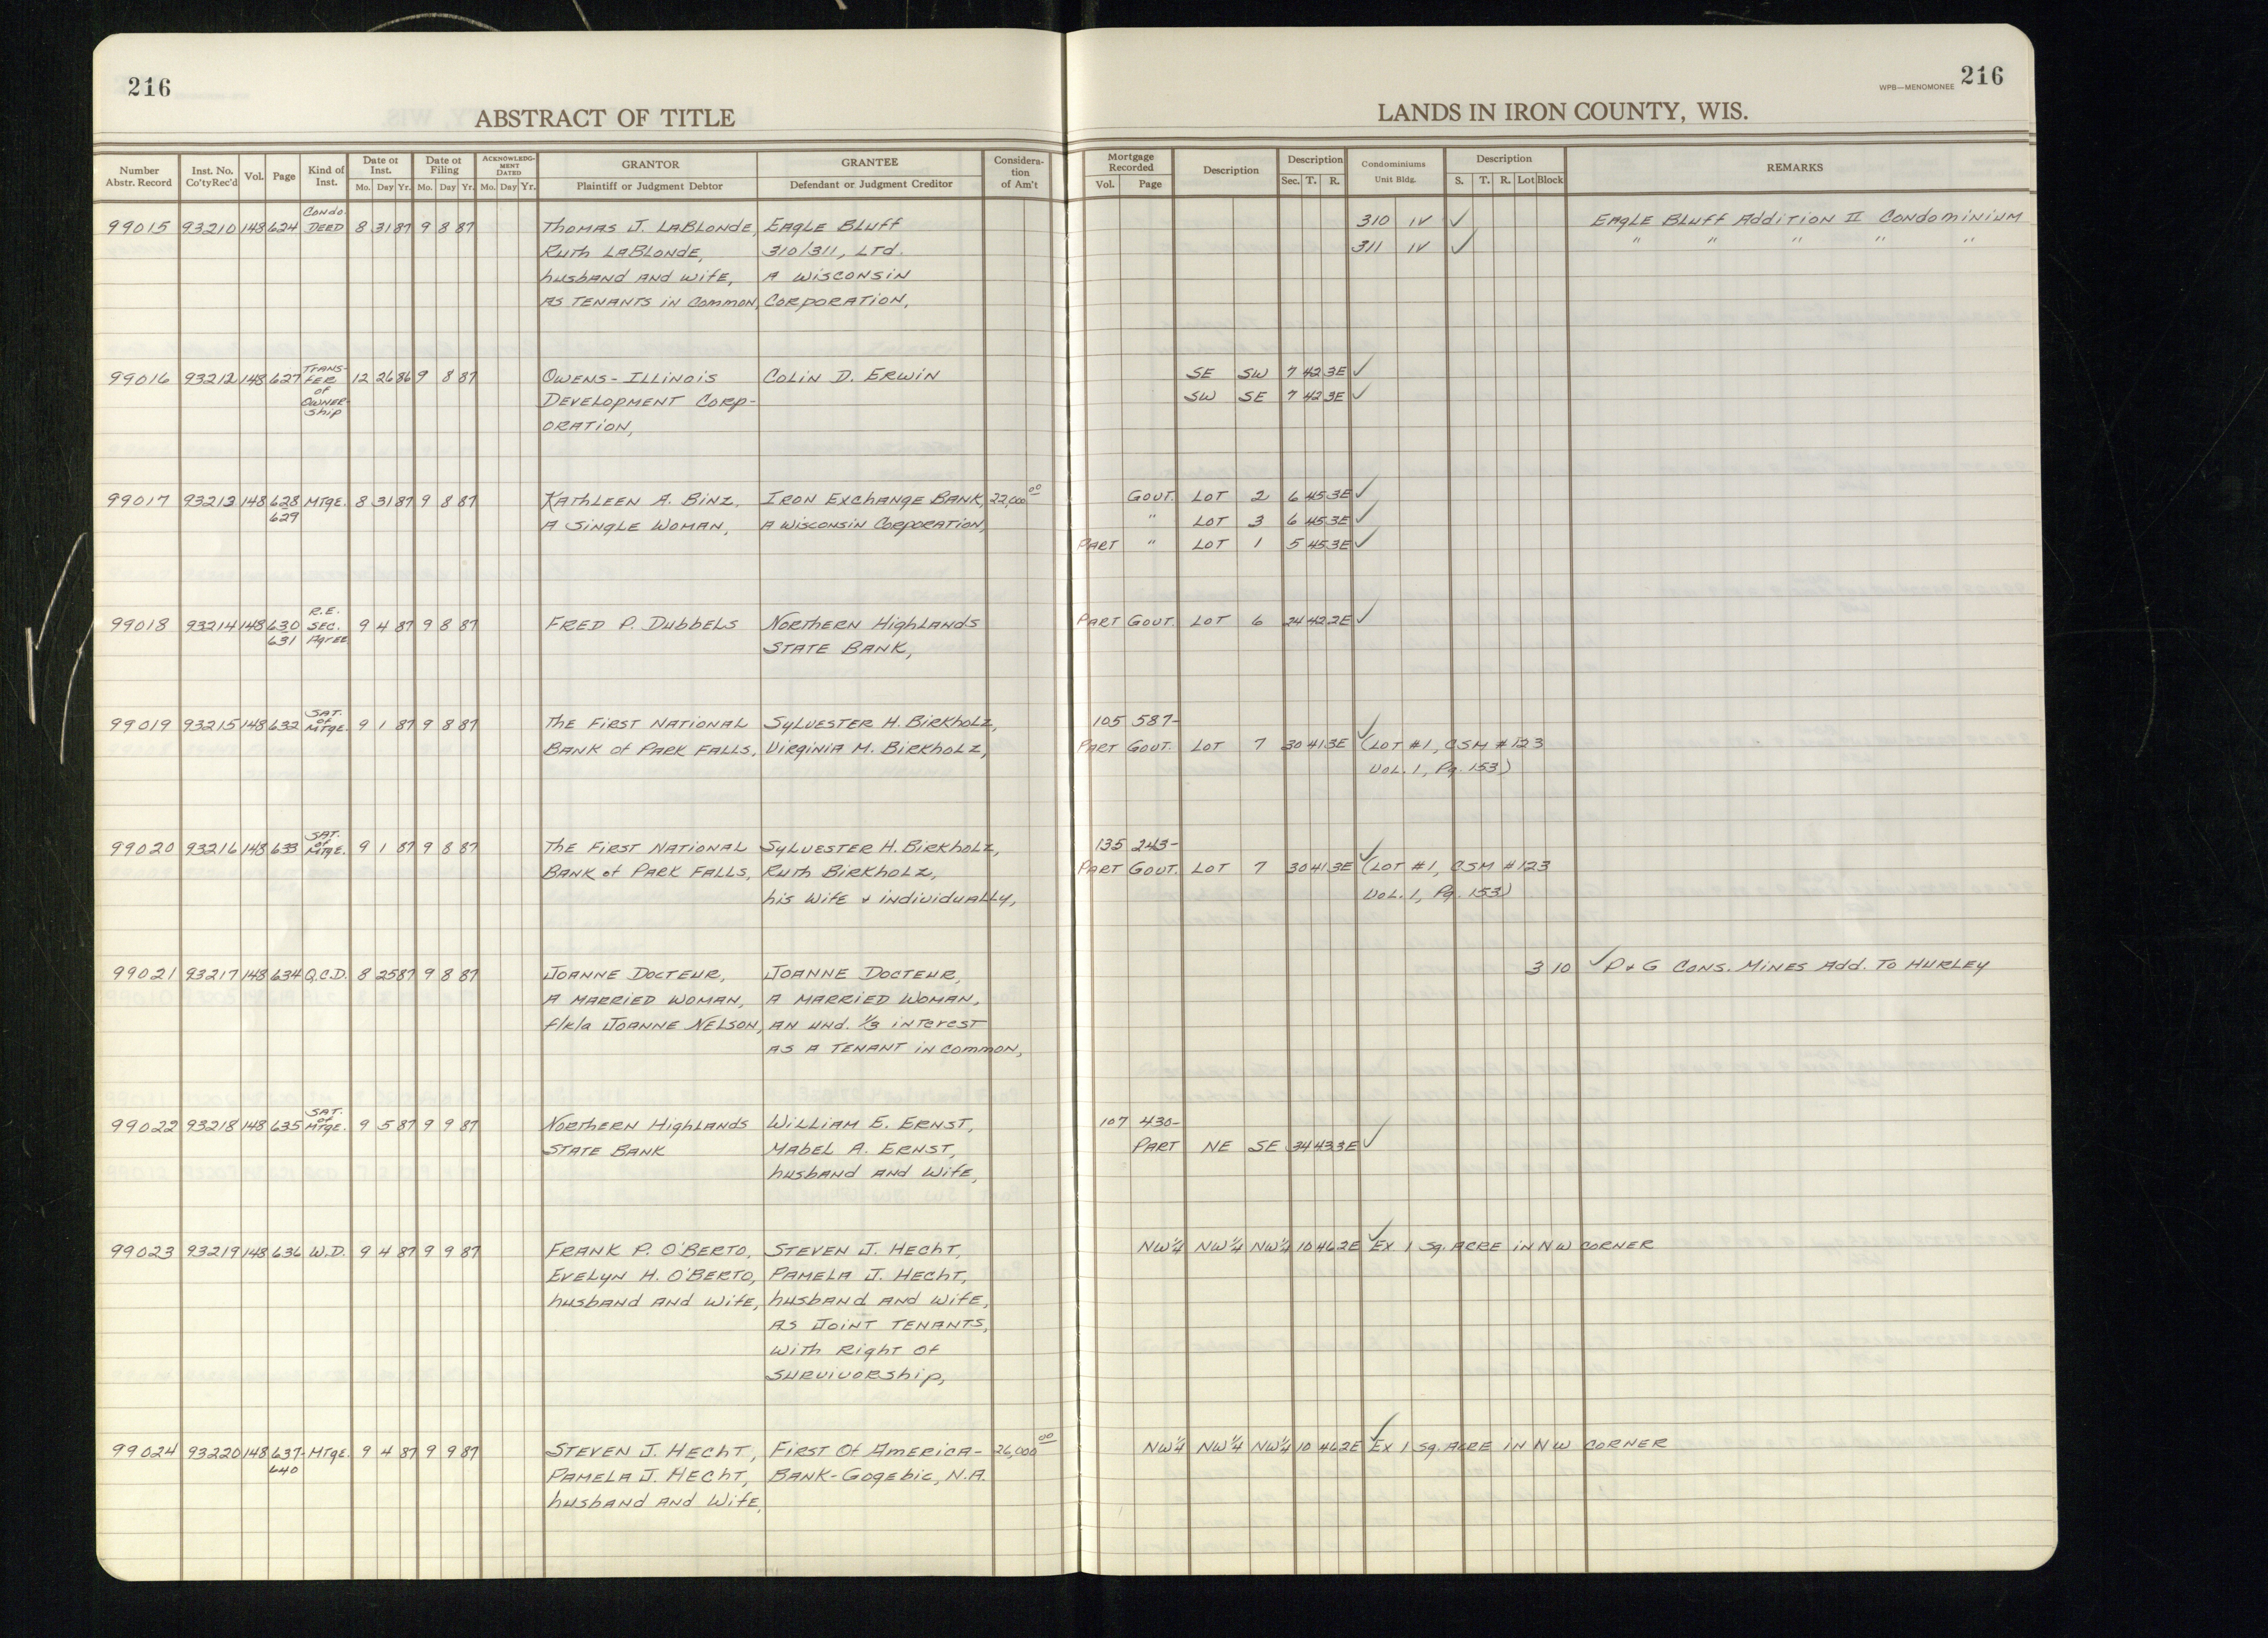 216
ABSTRACT OF TITLE
LANDS IN IRON COUNTY, WIS.
WPB—MENOMONEE 216
Number Abstr. Record | Inst. No. Co'ty Rec'd | Vol. | Page | Kind of Inst. | Date of Inst. Mo. Day Yr. | Date of Filing Mo. Day Yr. | ACKNOWLEDGMENT DATED Mo. Day Yr. | GRANTOR Plaintiff or Judgment Debtor | GRANTEE Defendant or Judgment Creditor | Consideration of Am't | Mortgage Recorded Vol. Page | Description | Description Sec. T. R. | Condominiums Unit Bldg. | Description S. T. R. Lot Block | REMARKS
99015 93210 148 624 Condo DEED 8 31 87 9 8 87 Thomas J. LaBlonde, Eagle Bluff 310 IV ✓ Eagle Bluff Addition II Condominium
Ruth LaBlonde, 310/311, Ltd. 311 IV ✓ " " " " "
husband and wife, A Wisconsin
as tenants in common, Corporation,
99016 93212 148 627 Transfer of Ownership 12 26 86 9 8 87 Owens-Illinois Colin D. Erwin SE SW 7 42 3E ✓
Development Corp- SW SE 7 42 3E ✓
oration,
99017 93213 148 628 Mtge. 8 31 87 9 8 87 Kathleen A. Binz, Iron Exchange Bank, 22,000 00 Gout. Lot 2 6 45 3E ✓
629 A Single Woman, A Wisconsin Corporation, " Lot 3 6 45 3E ✓
Part " Lot 1 5 45 3E ✓
99018 93214 148 630 631 R.E. Sec. Agree 9 4 87 9 8 87 Fred P. Dubbels Northern Highlands Part Gout. Lot 6 24 42 2E ✓
State Bank,
99019 93215 148 632 Sat. of Mtge. 9 1 87 9 8 87 The First National Sylvester H. Birkholz, 105 587-
Bank of Park Falls, Virginia M. Birkholz, Part Gout. Lot 7 30 41 3E ✓ (Lot #1, CSM #123
Vol. 1, Pg. 153)
99020 93216 148 633 Sat. of Mtge. 9 1 87 9 8 87 The First National Sylvester H. Birkholz, 135 243-
Bank of Park Falls, Ruth Birkholz, Part Gout. Lot 7 30 41 3E ✓ (Lot #1, CSM #123
his wife & individually, Vol. 1, Pg. 153)
99021 93217 148 634 Q.C.D. 8 25 87 9 8 87 Joanne Docteur, Joanne Docteur, 3 10 ✓ P & G Cons. Mines Add. To Hurley
A Married Woman, A Married Woman,
f/k/a Joanne Nelson, an und. 1/3 interest
as a tenant in common,
99022 93218 148 635 Sat. of Mtge. 9 5 87 9 9 87 Northern Highlands William E. Ernst, 107 430-
State Bank Mabel A. Ernst, Part NE SE 34 43 3E ✓
husband and wife,
99023 93219 148 636 W.D. 9 4 87 9 9 87 Frank P. O'Berto, Steven J. Hecht, NW¼ NW¼ NW¼ 10 46 2E ✓ Ex 1 Sq. Acre in NW Corner
Evelyn H. O'Berto, Pamela J. Hecht,
husband and wife, husband and wife,
as Joint Tenants,
with Right of
Survivorship,
99024 93220 148 637- Mtge. 9 4 87 9 9 87 Steven J. Hecht, First Of America- 26,000 00 NW¼ NW¼ NW¼ 10 46 2E ✓ Ex 1 Sq. Acre in NW Corner
640 Pamela J. Hecht, Bank-Gogebic, N.A.
husband and wife,